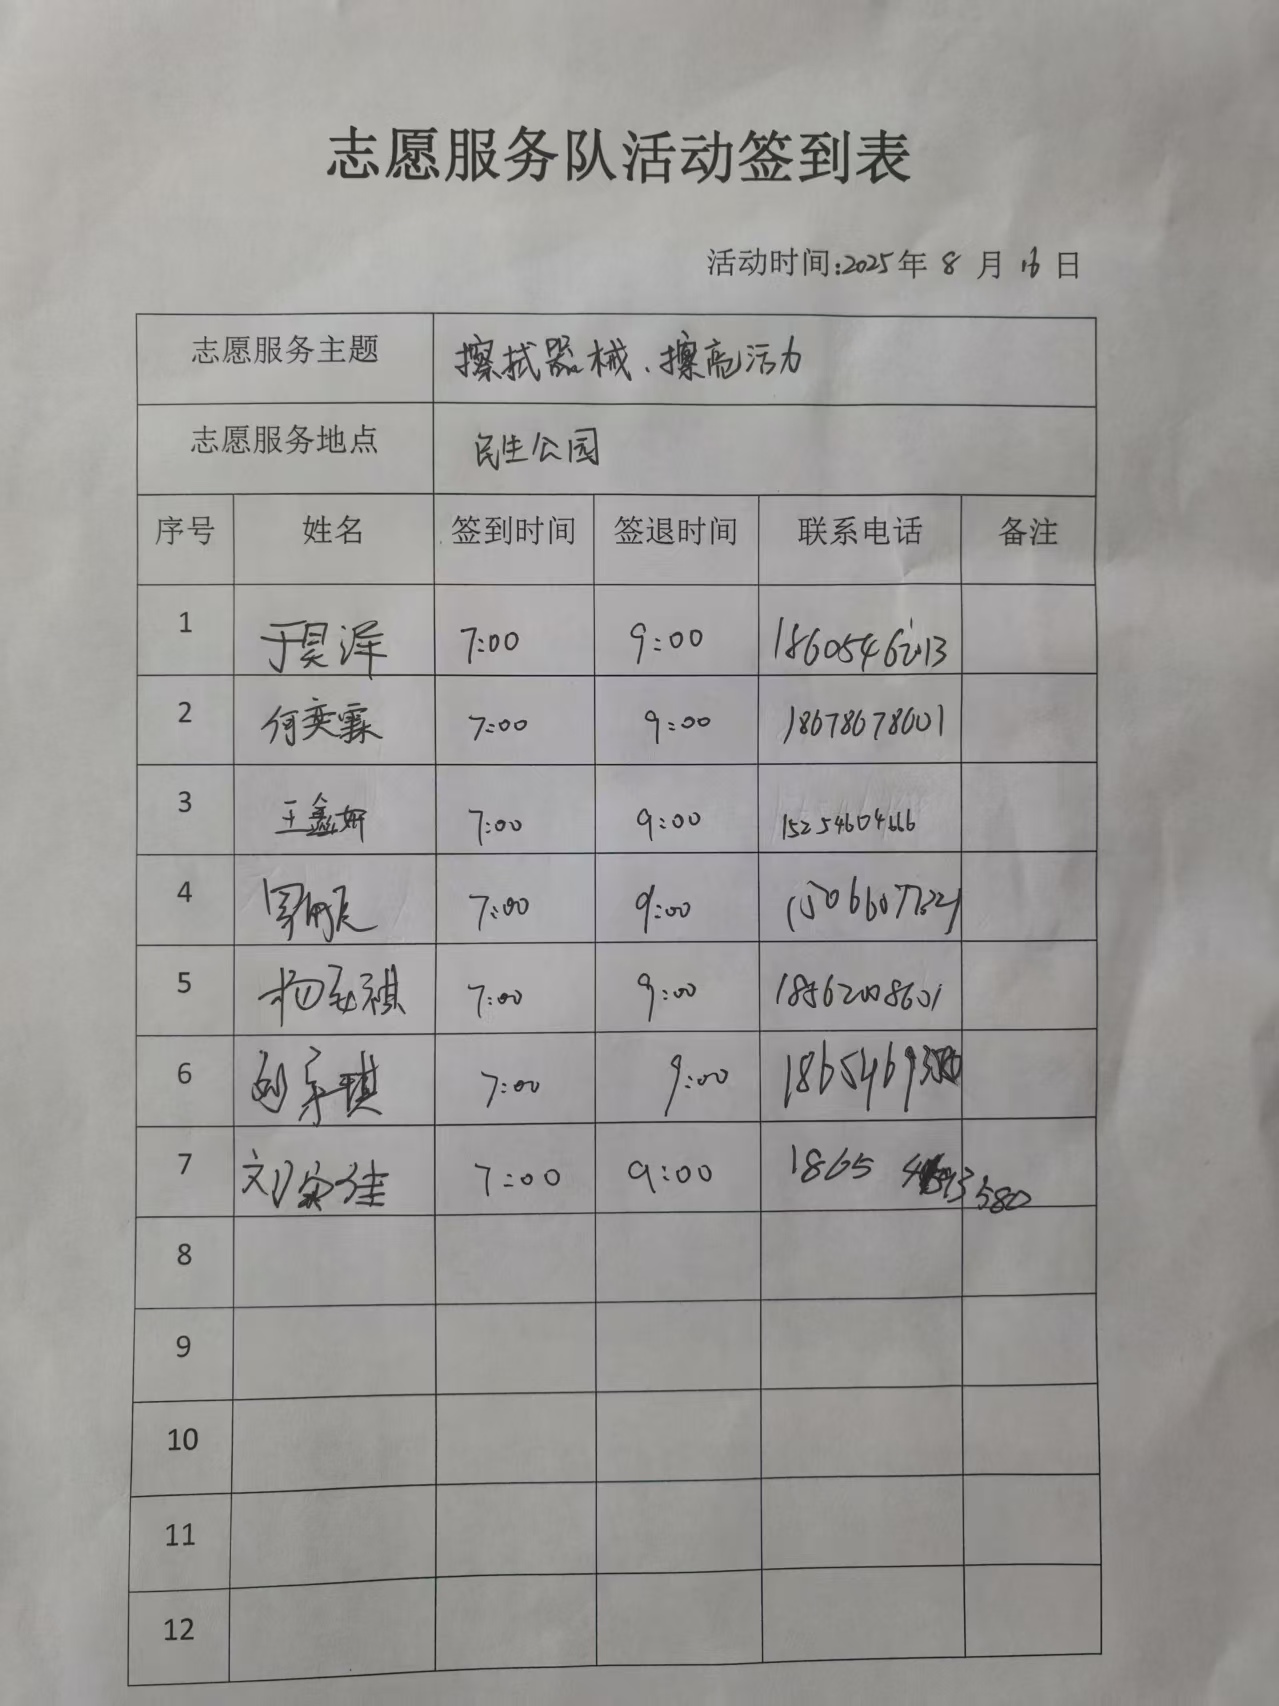 志愿服务队活动签到表
活动时间:2025年 8 月 16 日
志愿服务主题 擦拭器械、擦亮活力
志愿服务地点 民生公园
序号 姓名 签到时间 签退时间 联系电话 备注
1 于昊泽 7:00 9:00
2 何奕霖 7:00 9:00 18678678601
3 王鑫妍 7:00 9:00 15254604666
4 7:00 9:00
5 7:00 9:00 18562008601
6 7:00 9:00
7 刘 佳 7:00 9:00 1865
8
9
10
11
12